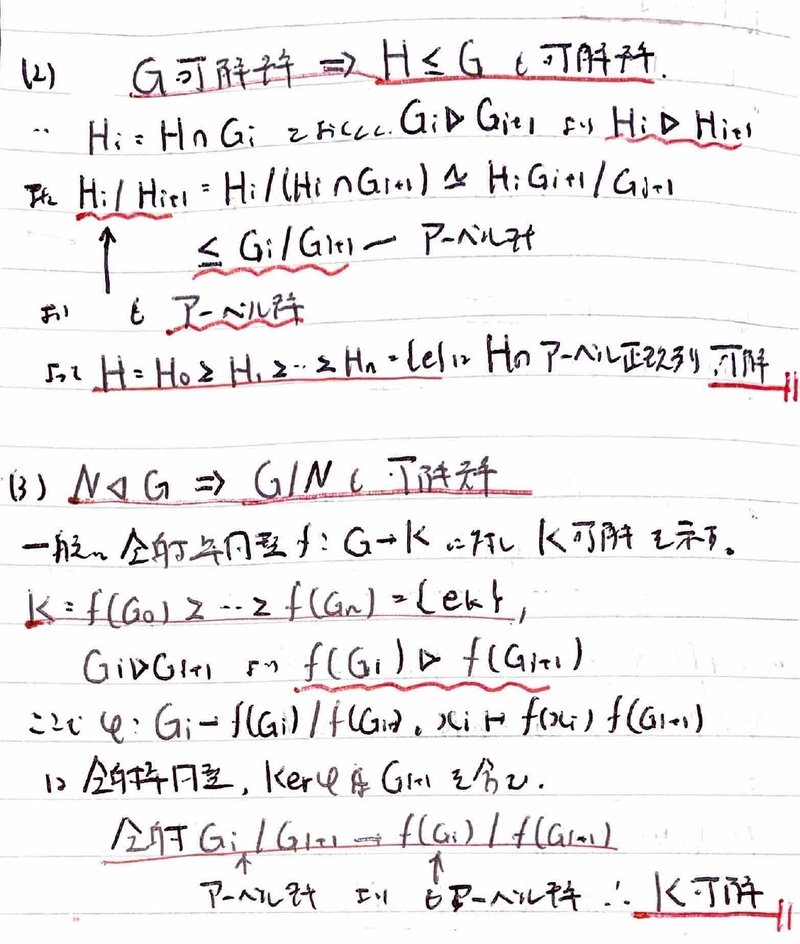 (2) G可解群 ⇒ H ≤ G も可解群.
∵ H_i = H∩G_i とおくと. G_i ▷ G_{i+1} より H_i ▷ H_{i+1}
また H_i/H_{i+1} = H_i/(H_i∩G_{i+1}) ≃ H_iG_{i+1}/G_{i+1}
≤ G_i/G_{i+1} ー アーベル群
↑
より も アーベル群
よって H = H_0 ≥ H_1 ≥ … ≥ H_n = {e} は Hの アーベル正規列 可解 //
(3) N ◁ G ⇒ G/N も 可解群
一般に 全射準同型 f: G → K に対し K可解 を示す。
K = f(G_0) ≥ … ≥ f(G_n) = {e_K},
G_i ▷ G_{i+1} より f(G_i) ▷ f(G_{i+1})
ここで φ: G_i → f(G_i)/f(G_{i+1}), x_i ↦ f(x_i) f(G_{i+1})
は 全射準同型, Kerφ は G_{i+1} を含む.
全射 G_i/G_{i+1} → f(G_i)/f(G_{i+1})
↑ ↑
アーベル群 より もアーベル群 ∴ K可解 //